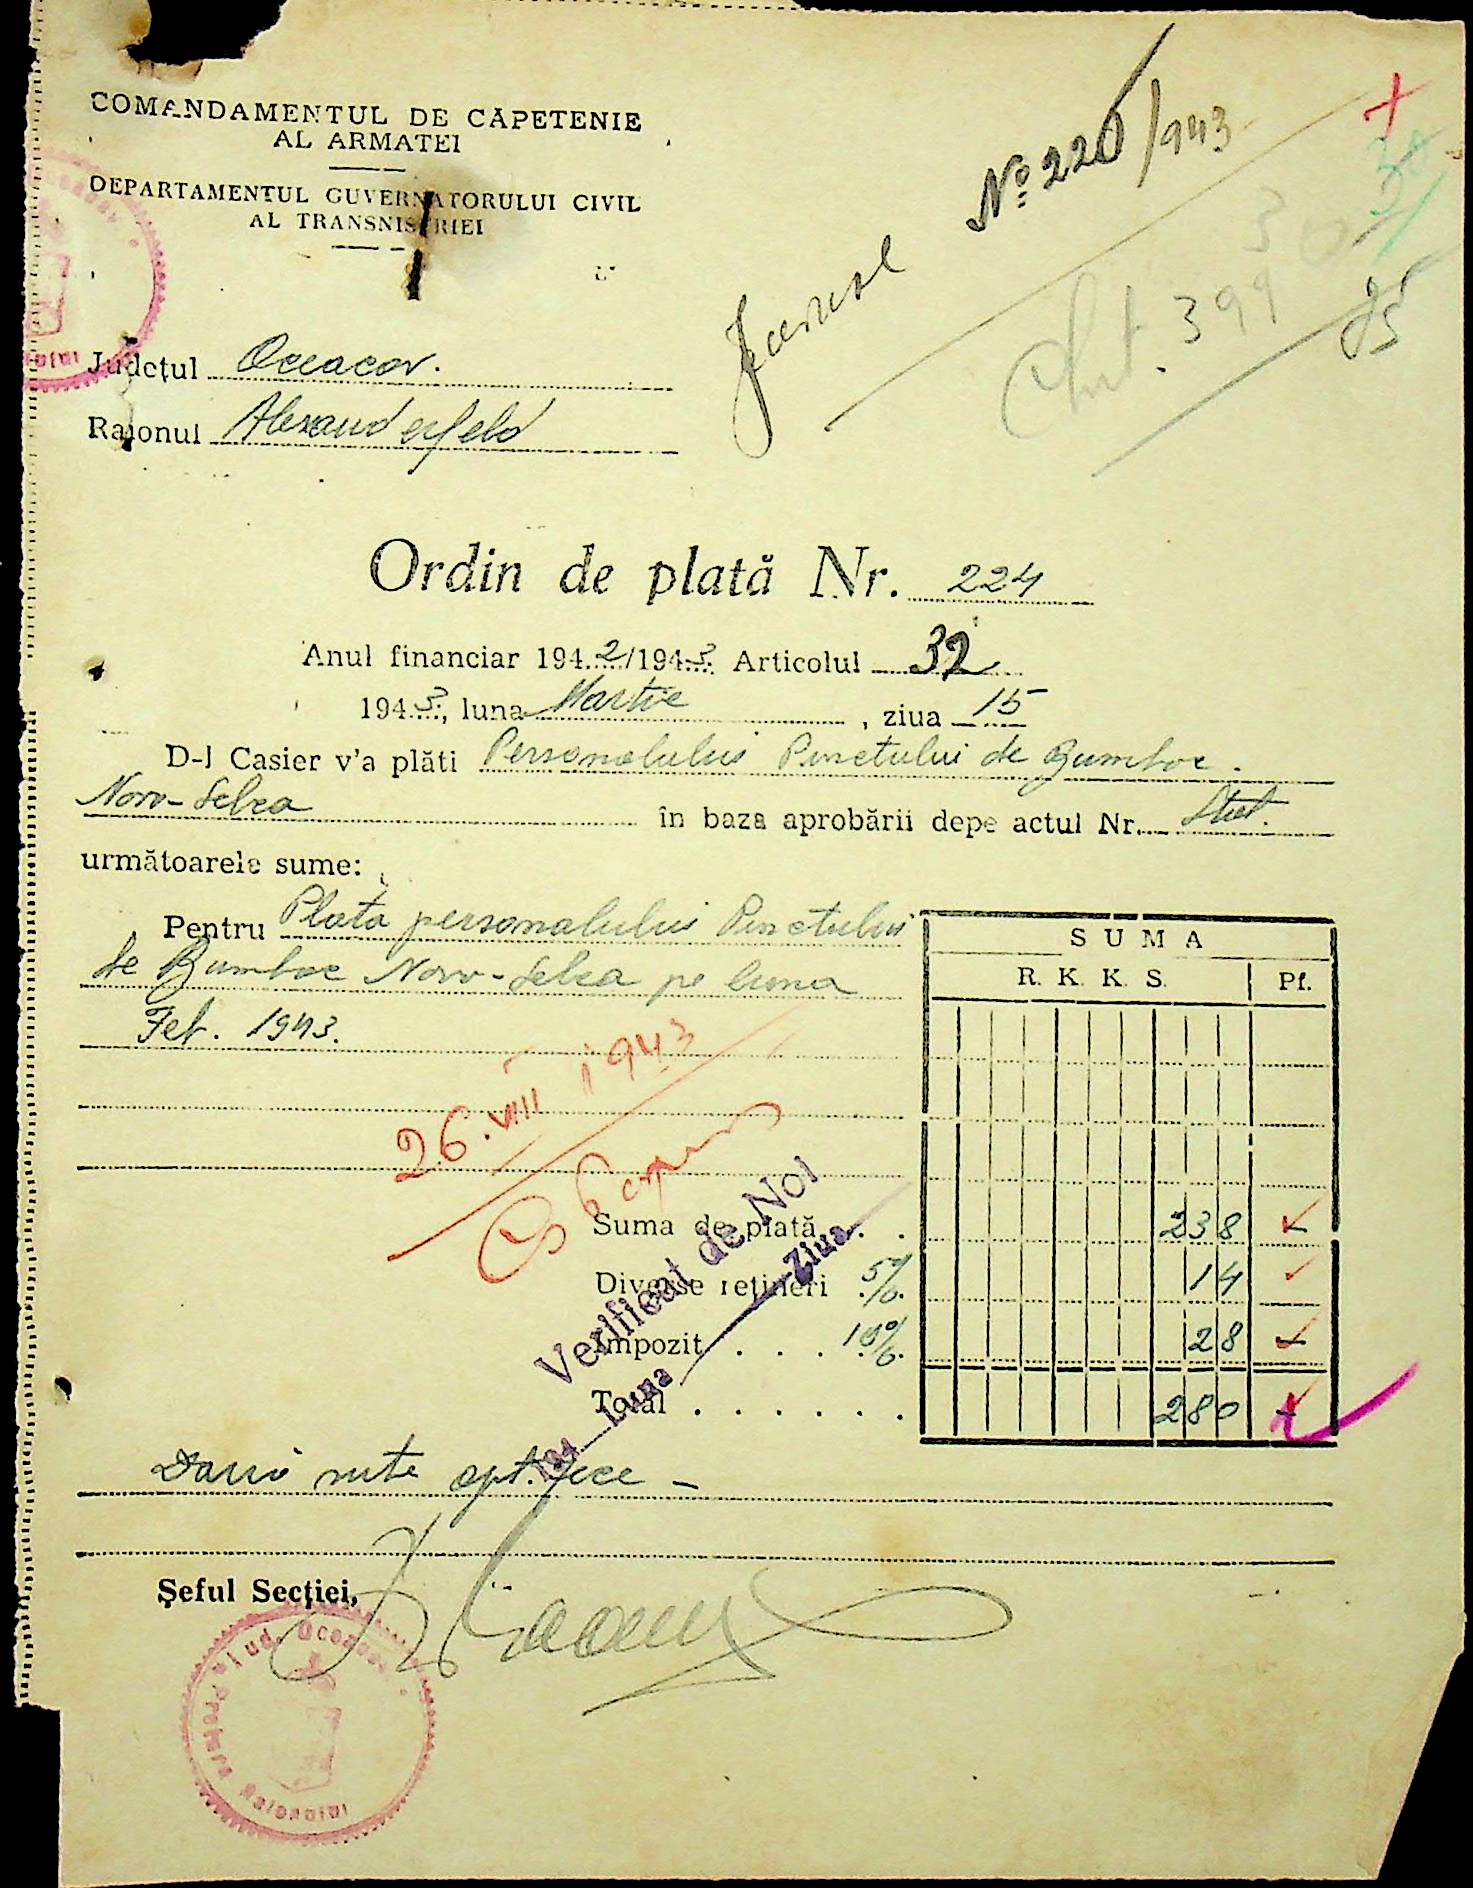 COMANDAMENTUL DE CĂPETENIE
AL ARMATEI
DEPARTAMENTUL GUVERNATORULUI CIVIL
AL TRANSNISTRIEI
No. 220/943
+
30
Cht. 399
85
Județul Oceacov.
Raionul Alexanderfeld
Ordin de plată Nr. 224
Anul financiar 1942/1943 Articolul 32
1943, luna Martie, ziua 15
D-l Casier v'a plăti Personalului Punctului de Bumbac
Novo-Selca în baza aprobării depe actul Nr. Stat.
următoarele sume:
Pentru Plata personalului Punctului
de Bumbac Novo-Selca pe luna
Feb. 1943.
SUMA
R. K. K. S. Pf.
26.VIII 1943
Suma de plată . . 238 -
Diverse rețineri 5% 14
Impozit . . . 10% 28 -
Total . . . . . . . 280 -
Verificat de Noi
194 Luna Ziua
Două sute opt zece -
Șeful Secției,
Jud. Oceacov
Pretura Raionului